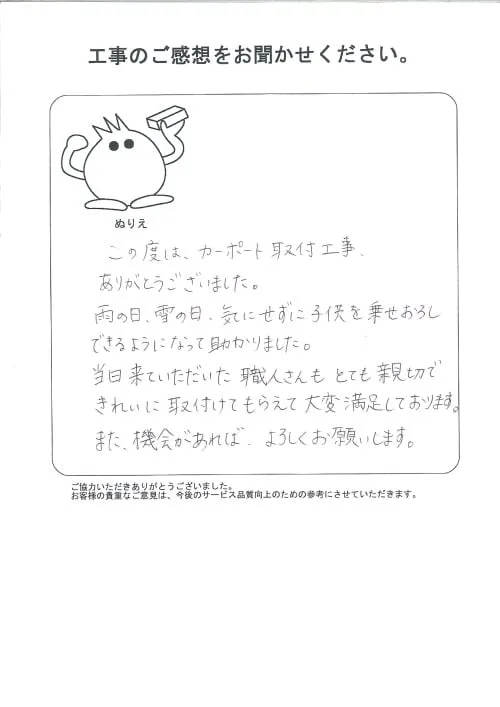 工事のご感想をお聞かせください。
ぬりえ
この度は、カーポート取付工事、
ありがとうございました。
雨の日、雪の日、気にせずに子供を乗せおろし
できるようになって助かりました。
当日来ていただいた職人さんもとても親切で
きれいに取付けてもらえて大変満足しております。
また、機会があれば、よろしくお願いします。
ご協力いただきありがとうございました。
お客様の貴重なご意見は、今後のサービス品質向上のための参考にさせていただきます。